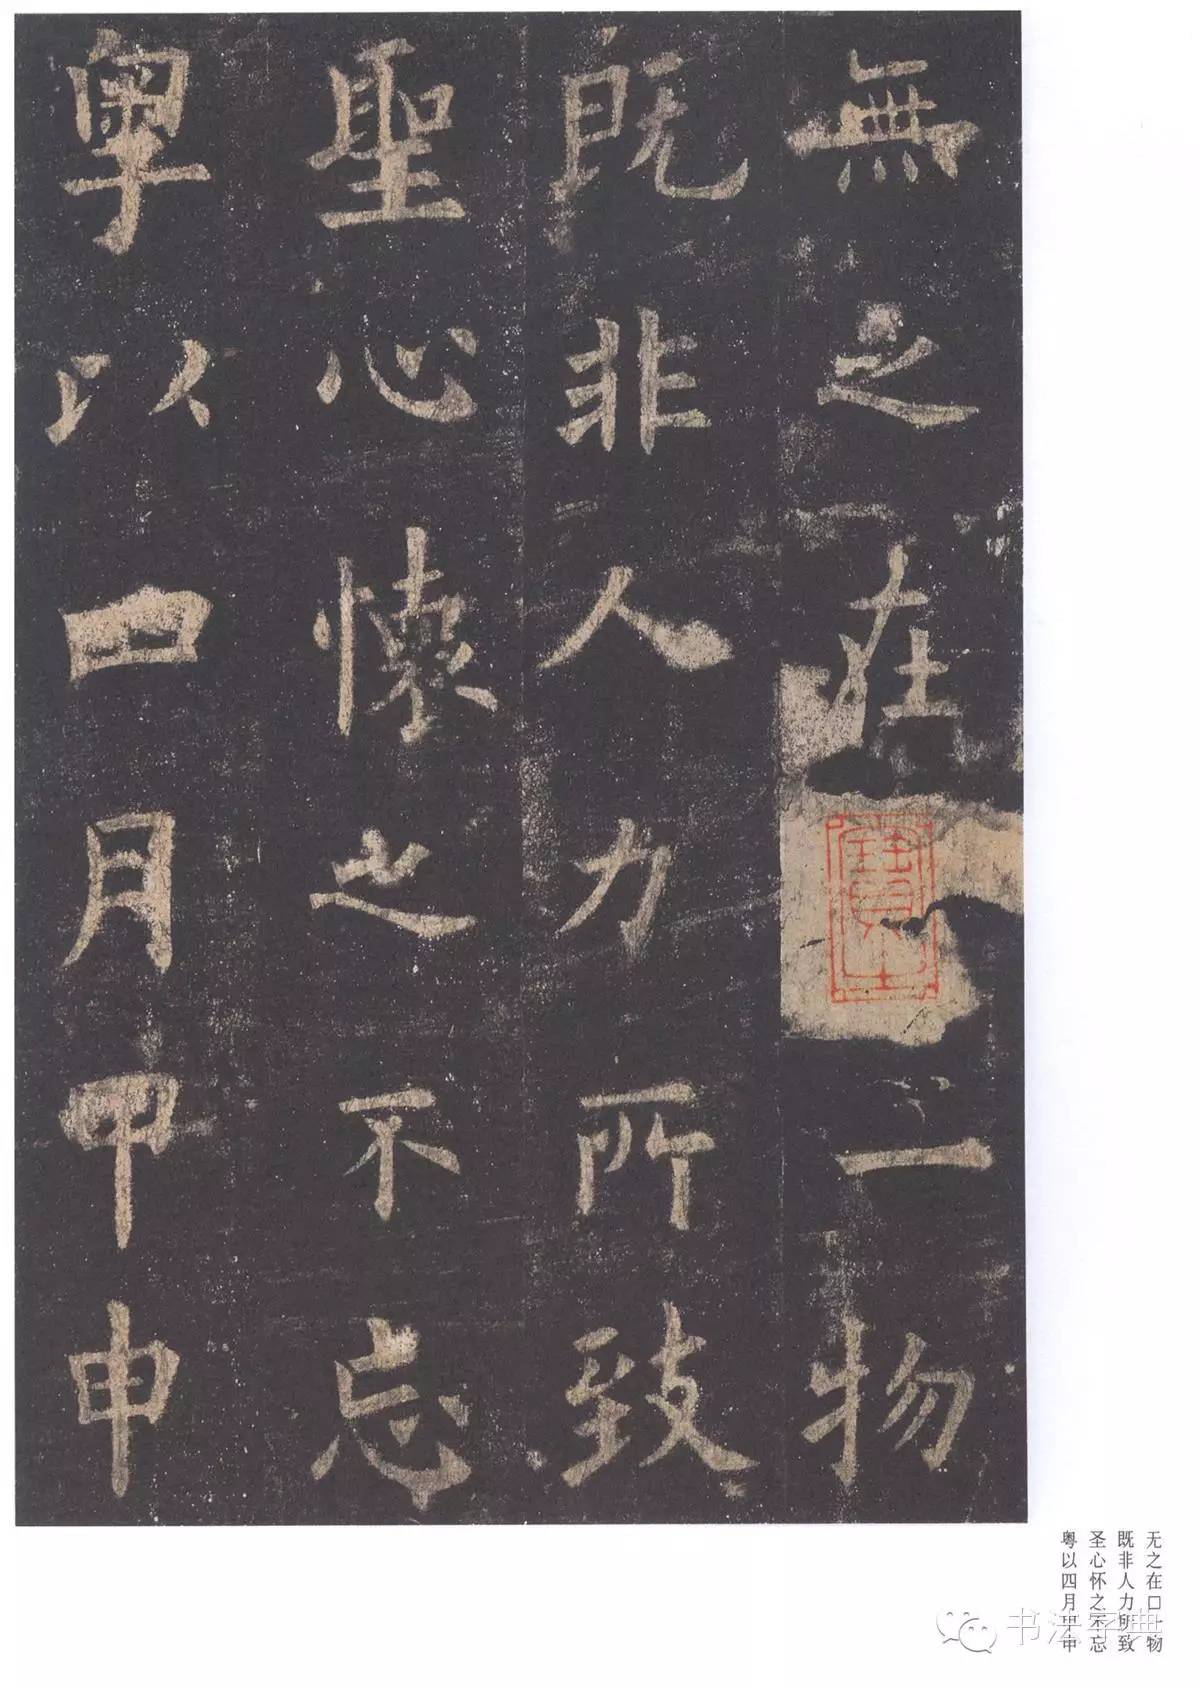 無之在一物
既非人力所致
聖心懷之不忘
粤以四月甲申
无之在口一物
既非人力所致
圣心怀之不忘
粤以四月甲申
书法字典